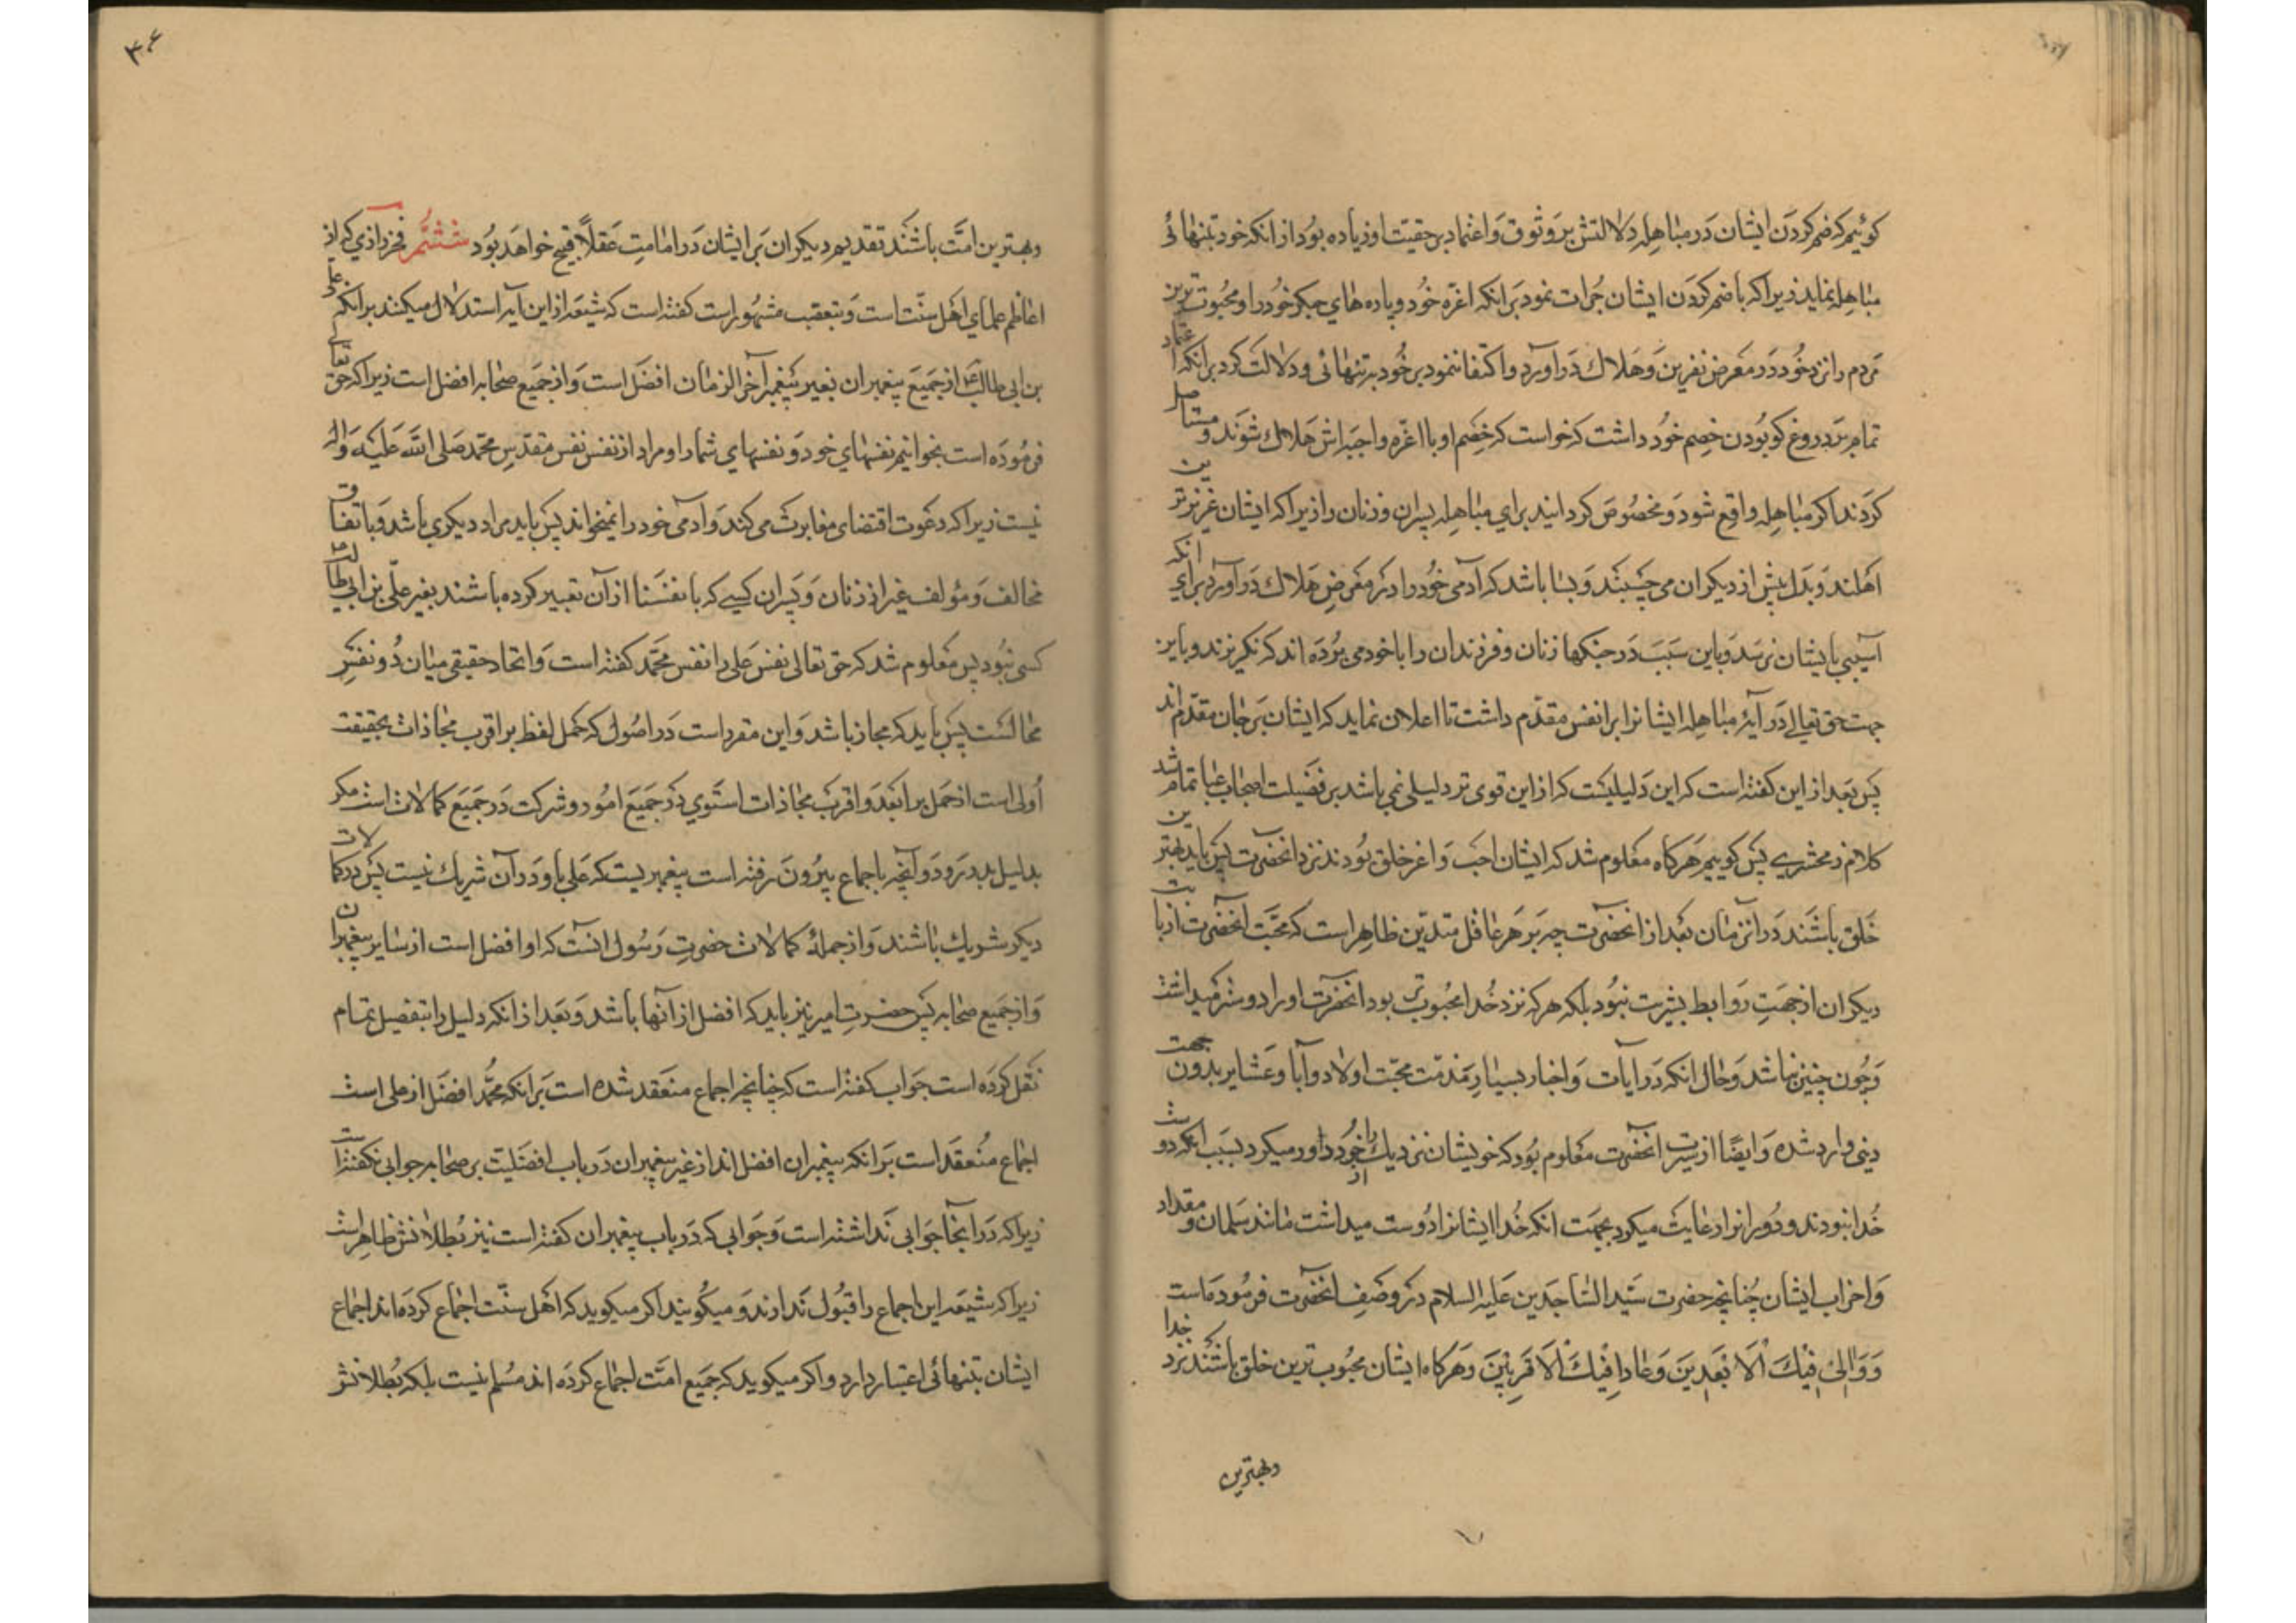 كوئيم كه ضم كردن ايشان در مباهله دلالتش بر وثوق و اعتماد بر حقيت او زياده بود از انكه خود بتنهائى
مباهله نمايد زيرا كه با ضم كردن ايشان جرات نمود بر انكه اعزه خود و پاره هاي جكر خود را و محبوت ترين
مردم را نزد خود در معرض نفرين و هلاك در اورد و اكتفا ننمود بر خود به تنهائى و دلالت كرد بر انكه اعتماد
تمام بر دروغ كو بودن خصم خود داشت كه خواست كه خصم او با اعزه و احبه اش هلاك شوند و مستاصل
كردند اكر مباهله واقع شود و مخصوص كردانيد براي مباهله پسران و زنان را زيرا كه ايشان عزيزترين
اهلند و بدل بيش از ديكران مى چسبند و بسا باشد كه آدمى خود را در معرض هلاك در آورد براي انكه
آسيبى بايشان نرسد و باين سبب در جنكها زنان و فرزندان را با خود مى برده اند كه نكريزند و باين
جهت حق تعالى در آيۀ مباهله ايشانرا بر انفس مقدم داشت تا اعلان نمايد كه ايشان بر جان مقدم اند
پس بعد از اين كفته است كه اين دليليست كه از اين قوى تر دليلى نمى باشد بر فضيلت اصحاب عبا تمام شد
كلام زمخشري پس كوييم هركاه معلوم شد كه ايشان احب و اعز خلق بودند نزد انحضرت پس بايد بهترين
خلق باشند در انزمان بعد از انحضرت چه بر هر عاقل متدين ظاهر است كه محبت آنحضرت
ديكران از جهت روابط بشريت نبود بلكه هركه نزد خدا محبوب تر بود انحضرت او را دوستر ميداشت
و چون چنين نباشد و حال انكه در ايات و اخبار بسيار مذمت محبت اولاد و آبا و عشاير بدون جهت
دينى وارد شده و ايضا از سيرت انحضرت معلوم بود كه خويشان نزديك را از خود دور ميكرد بسبب انكه دوست
خدا نبودند و دورانرا رعايت ميكرد بجهت انكه خدا ايشانرا دوست ميداشت مانند سلمان و مقداد
و اضراب ايشان چنانچه حضرت سيد الساجدين عليه السلام در وصف انحضرت فرموده است
و والى فيك الابعدين و عادا فيك الاقربين و هركاه ايشان محبوب ترين خلق باشند نزد خدا
و بهترين
۳۶
و بهترين امت باشند تقديم ديكران بر ايشان در امامت عقلا قبيح خواهد بود ششم فخر رازي كه از
اعاظم علماي اهل سنت است و بتعصب مشهور است كفته است كه شيعه از اين آيه استدلال ميكنند بر انكه على
بن ابى طالب ع از جميع پيغمبران بغير پيغمبر آخر الزمان افضل است و از جميع صحابه افضل است زيرا كه حق تعا
فرموده است بخوانيم نفسهاي خود و نفسهاي شما را و مراد از نفس نفس مقدس محمد صلى الله عليه و اله
نيست زيرا كه دعوت اقتضاى مغايرت مى كند و آدمى خود را نميخواند پس بايد مراد ديكري باشد و باتفاق
مخالف و مؤلف غير از زنان و پسران كسي كه بانفسنا از آن تعبير كرده باشند بغير على بن ابي طالب ع
كسى نبود پس معلوم شد كه حق تعالى نفس على را نفس محمد كفته است و اتحاد حقيقى ميان دو نفس
محالست پس بايد كه مجاز باشد و اين مقرر است در اصول كه حمل لفظ بر اقرب مجازات بحقيقت
أولى است از حمل بر ابعد و اقرب مجازات استوي در جميع امور و شركت در جميع كمالات است مكر
بدليل بدر رود و آنچه باجماع بيرون رفته است پيغمبريست كه على با و در آن شريك نيست پس در كمالات
ديكر شريك باشند و از جملۀ كمالات حضرت رسول انست كه او افضل است از ساير پيغمبران
و از جميع صحابه پس حضرت امير نيز بايد كه افضل از آنها باشد و بعد از انكه دليل را بتفصيل تمام
نقل كرده است جواب كفته است كه چنانچه اجماع منعقد شده است بر انكه محمد افضل از على است
اجماع منعقد است بر انكه پيغمبران افضل اند از غير پيغمبران در باب افضليت بر صحابه جوابى نكفته است
زيرا كه در انجا جوابى نداشته است و جوابى كه در باب پيغمبران كفته است نيز بطلانش ظاهر است
زيرا كه شيعه اين اجماع را قبول ندارند و ميكويند اكر ميكويد كه اهل سنت اجماع كرده اند اجماع
ايشان بتنهائى اعتبار دارد و اكر ميكويد كه جميع امت اجماع كرده اند مسلم نيست بلكه بطلانش